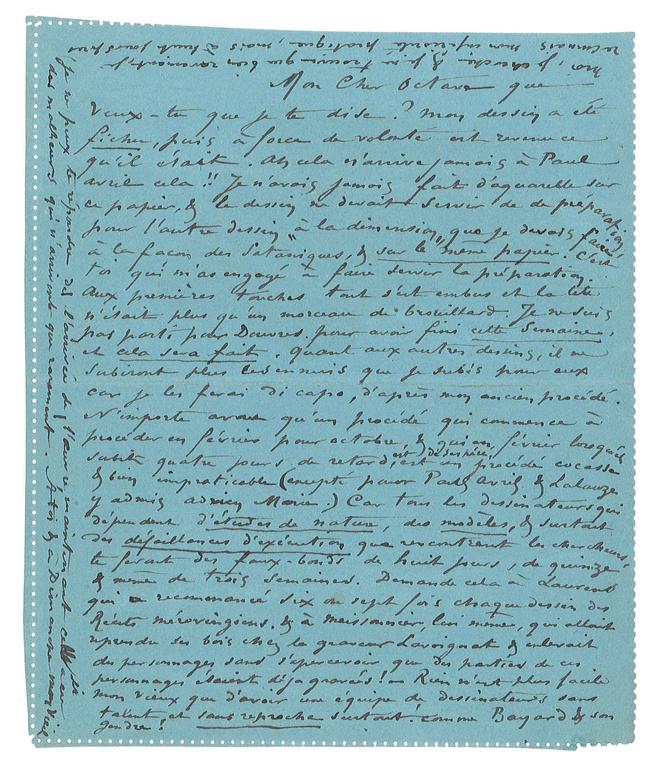 Mon Cher Octave que
Veux-tu que je te dise? mon dessin a été
fichu, puis à force de volonté est revenu ce
qu'il était. Ah cela n'arrive jamais à Paul
avril cela!! Je n'avais jamais fait d'aquarelle sur
ce papier, & le dessin ne devait servir de de préparation
pour l'autre dessin "à la dimension" que je devais faire
à la façon des Sataniques, & sur le "même papier. C'est
toi qui m'as engagé à faire servir la préparation.
Aux premières touches tout s'est embus et la tête
n'était plus qu'un morceau de brouillard. Je ne suis
pas parti pour Douvres pour avoir fini cette Semaine,
et cela sera fait. Quant aux autres dessins, il ne
subiront plus les ennuis que je subis pour eux
car je les ferai di capo, d'après mon ancien procédé.
N'importe avoue qu'un procédé qui commence à
procéder en février pour octobre, & qui en février lorsqu'il
subit quatre jours de retard est désespéré, est un procédé cocasse
& bien impraticable (excepté pour Paul Avril, & Lalauze
y admis Marie.) Car tous les dessinateurs qui
dépendent d'études de nature, des modèles, & surtout
des défaillances d'exécution que rencontrent les chercheurs,
te feront des faux-bonds de huit jours, de quinze
& même de trois semaines. Demande cela à Laurent
qui a recommencé six ou sept fois chaque dessin des
Récits mérovingiens, & à Meissonier, lui même, qui allait
reprendre ses bois chez le graveur Lavoignat & enlevait
des personnages sans s'apercevoir que des parties de ces
personnages étaient déjà gravées! – Rien n'est plus facile
mon vieux que d'avoir une équipe de dessinateurs sans
talent et sans reproche surtout. comme Bayard & son
gendre!
moi, je cherche & je ne trouve que bien rarement. Je
reconnais mon infériorité pratique, mais à huit jours près
je ne peux te répondre de l'arrivée de l'œuvre maintenant
des malheurs qui n'arrivent que rarement. A toi & à Dimanche mon vieux